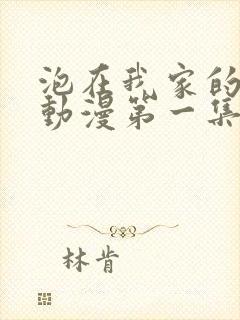 泡在我家的
動漫第一集
林肯